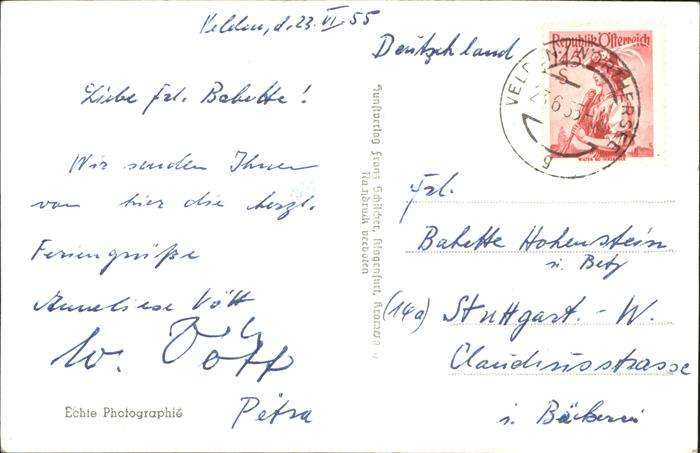 Velden, d. 23. VI. 55
Liebe Frl. Babette!
Wir senden Ihnen
von hier die herzl.
Feriengrüße
Anneliese Vött
W. Vött
Petra
Echte Photographie
Kunstverlag Franz Schilcher, Klagenfurt,
Nachdruck verboten
Deutschland
Republik Österreich
VELDEN AM WÖRTHERSEE
23.6.55
g
Frl.
Babette Hohenstein
u. Betz
(14a) Stuttgart.-W.
Claudiusstrasse
i. Bäckerei